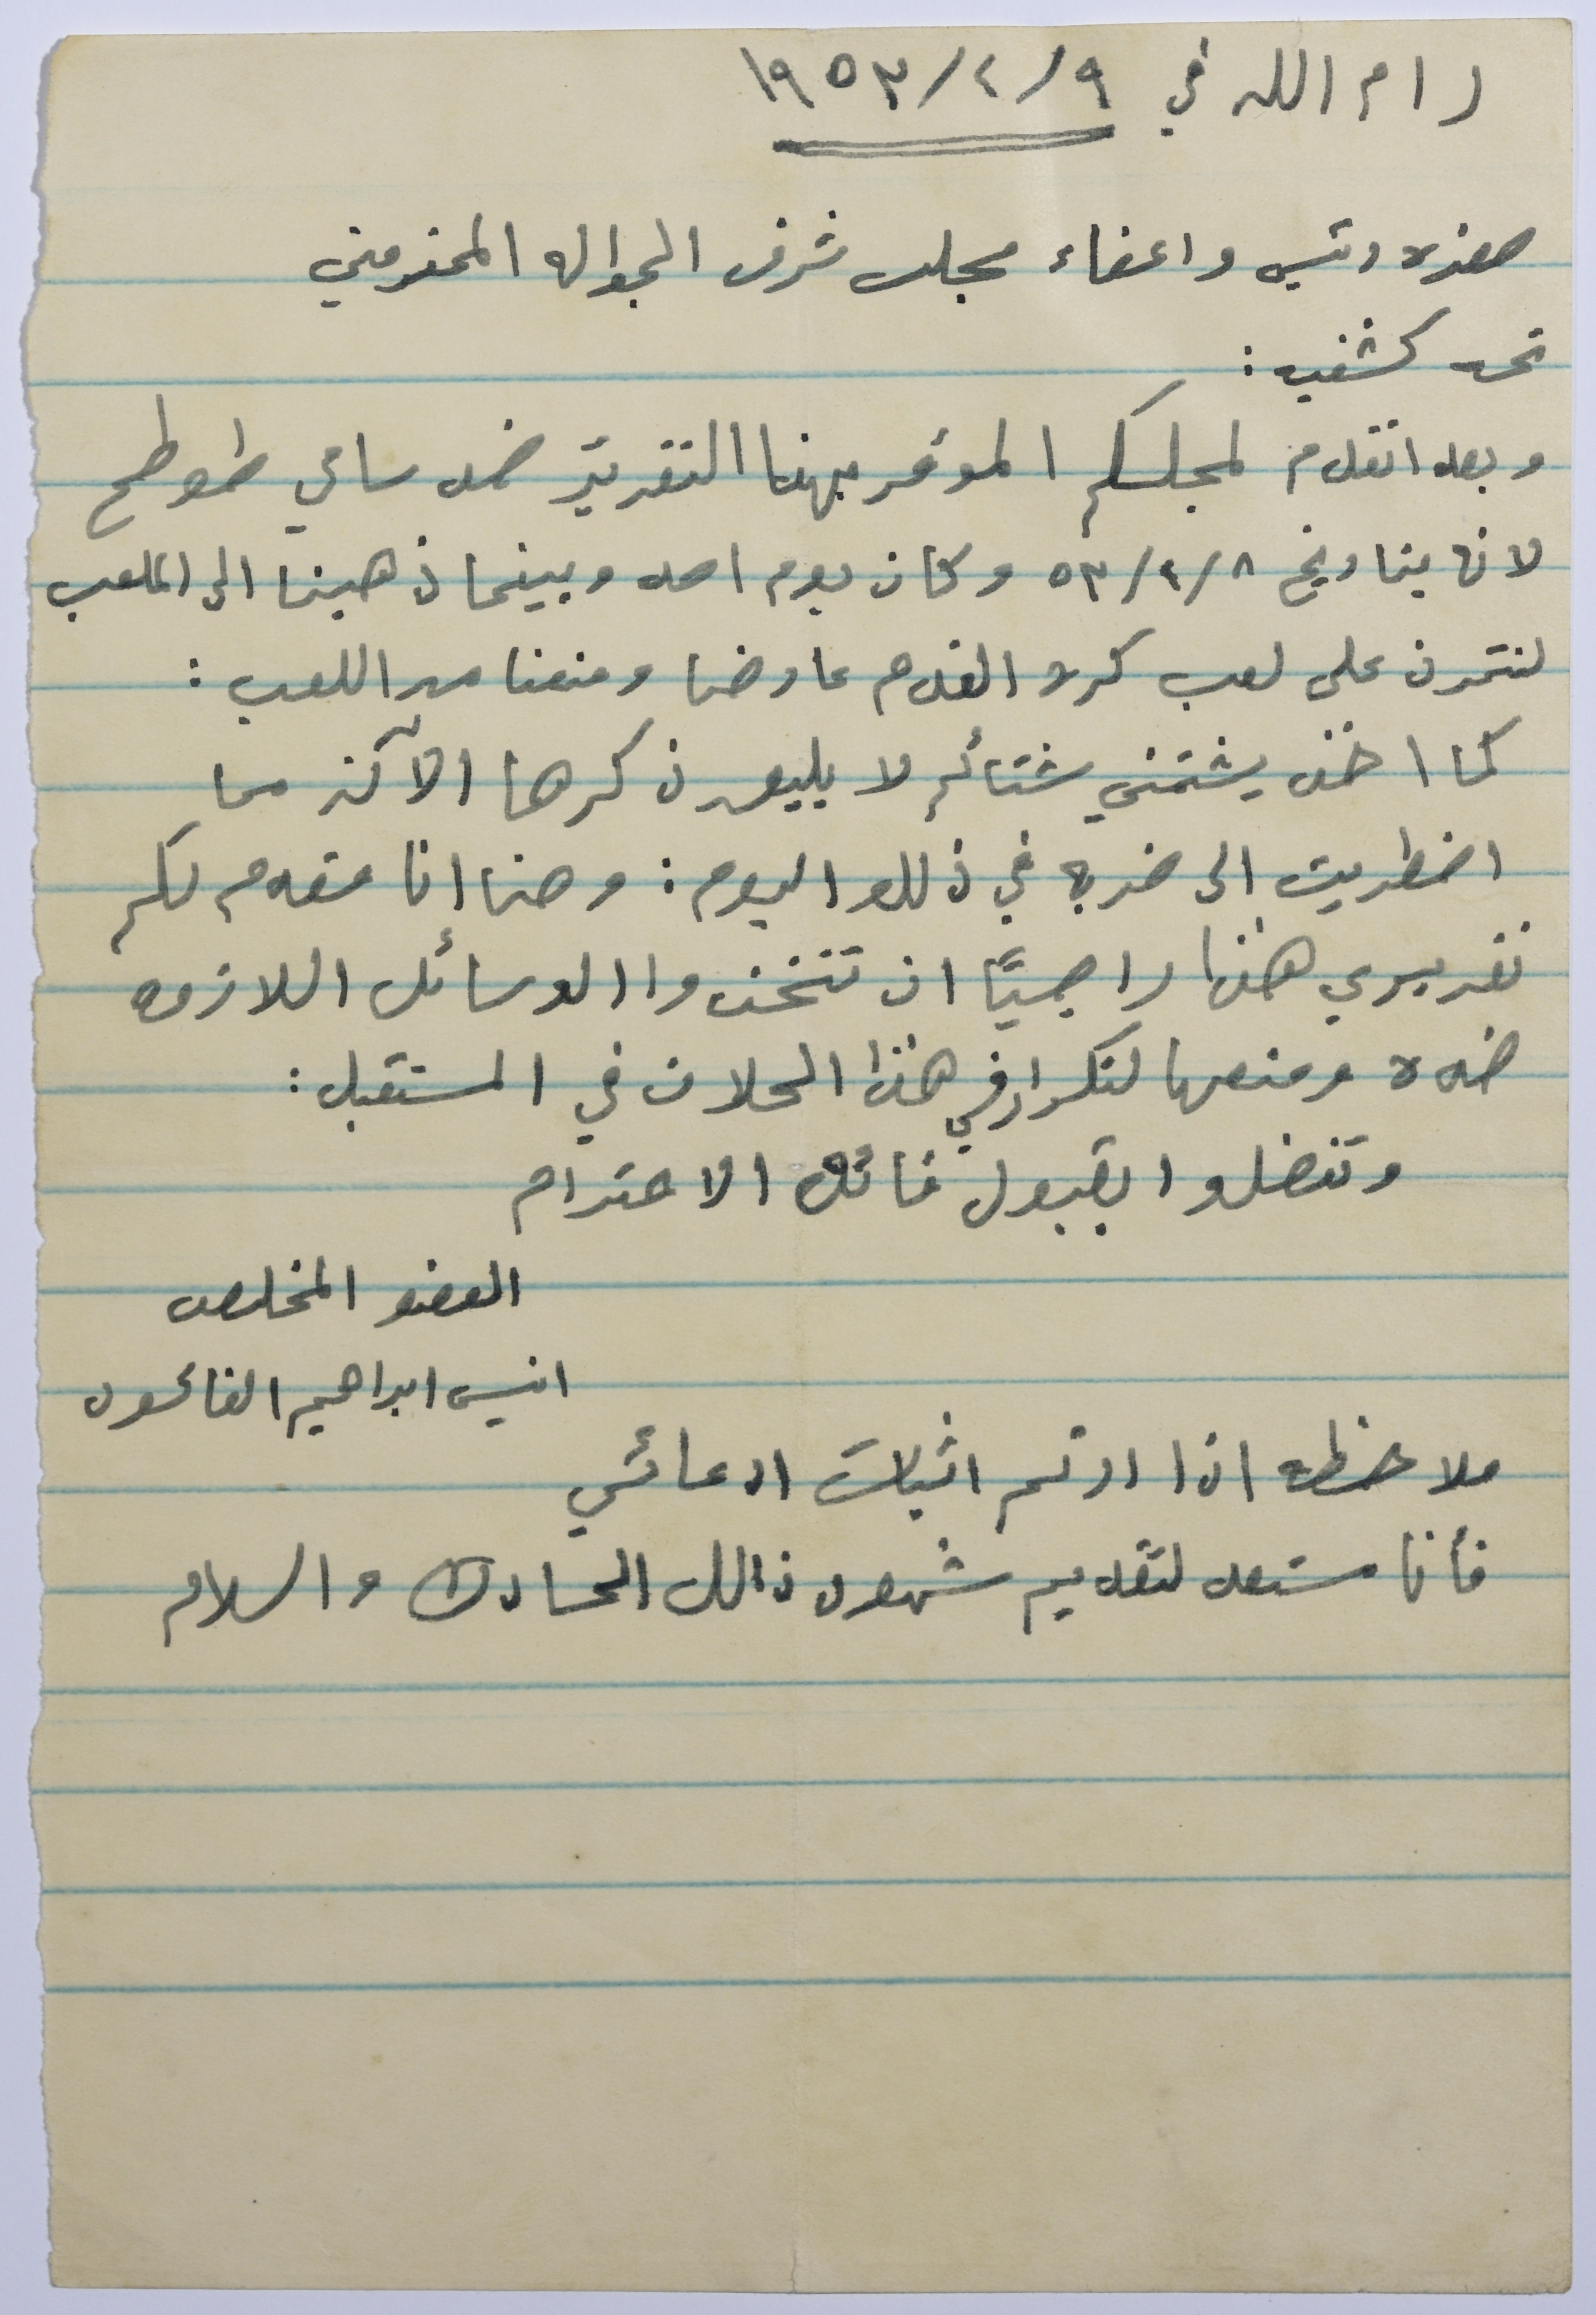 رام الله في ٩/٤/١٩٥٣
حضرة رئيس واعضاء مجلس شرف الجواله المحترمين
تحيه كشفيه :
وبعد اتقدم لمجلسكم الموقر بهذا التقرير ضد سامي طوطح
لانه بتاريخ ٨/٤/٥٣ وكان يوم احد وبينما ذهبنا الى الملعب
لنتمرن على لعب كرة القدم عارضنا ومنعنا من اللعب :
كما اخذ يشتمني شتائم لا يليق ذكرها الآن مما
اضطريت الى ضربه في ذلك اليوم : وهنا انا مقدم لكم
تقريري هذا راجيًا ان تتخذوا الوسائل اللازمه
ضده ومنعها لتكرار في هذا الحلات في المستقبل :
وتفضلوا بقبول فائق الاحترام
العضو المخلص
انيس ابراهيم
ملاحظه اذا اردتم اثبات ادعائي
فأنا مستعد لتقديم شهود ذالك الحادث والسلام